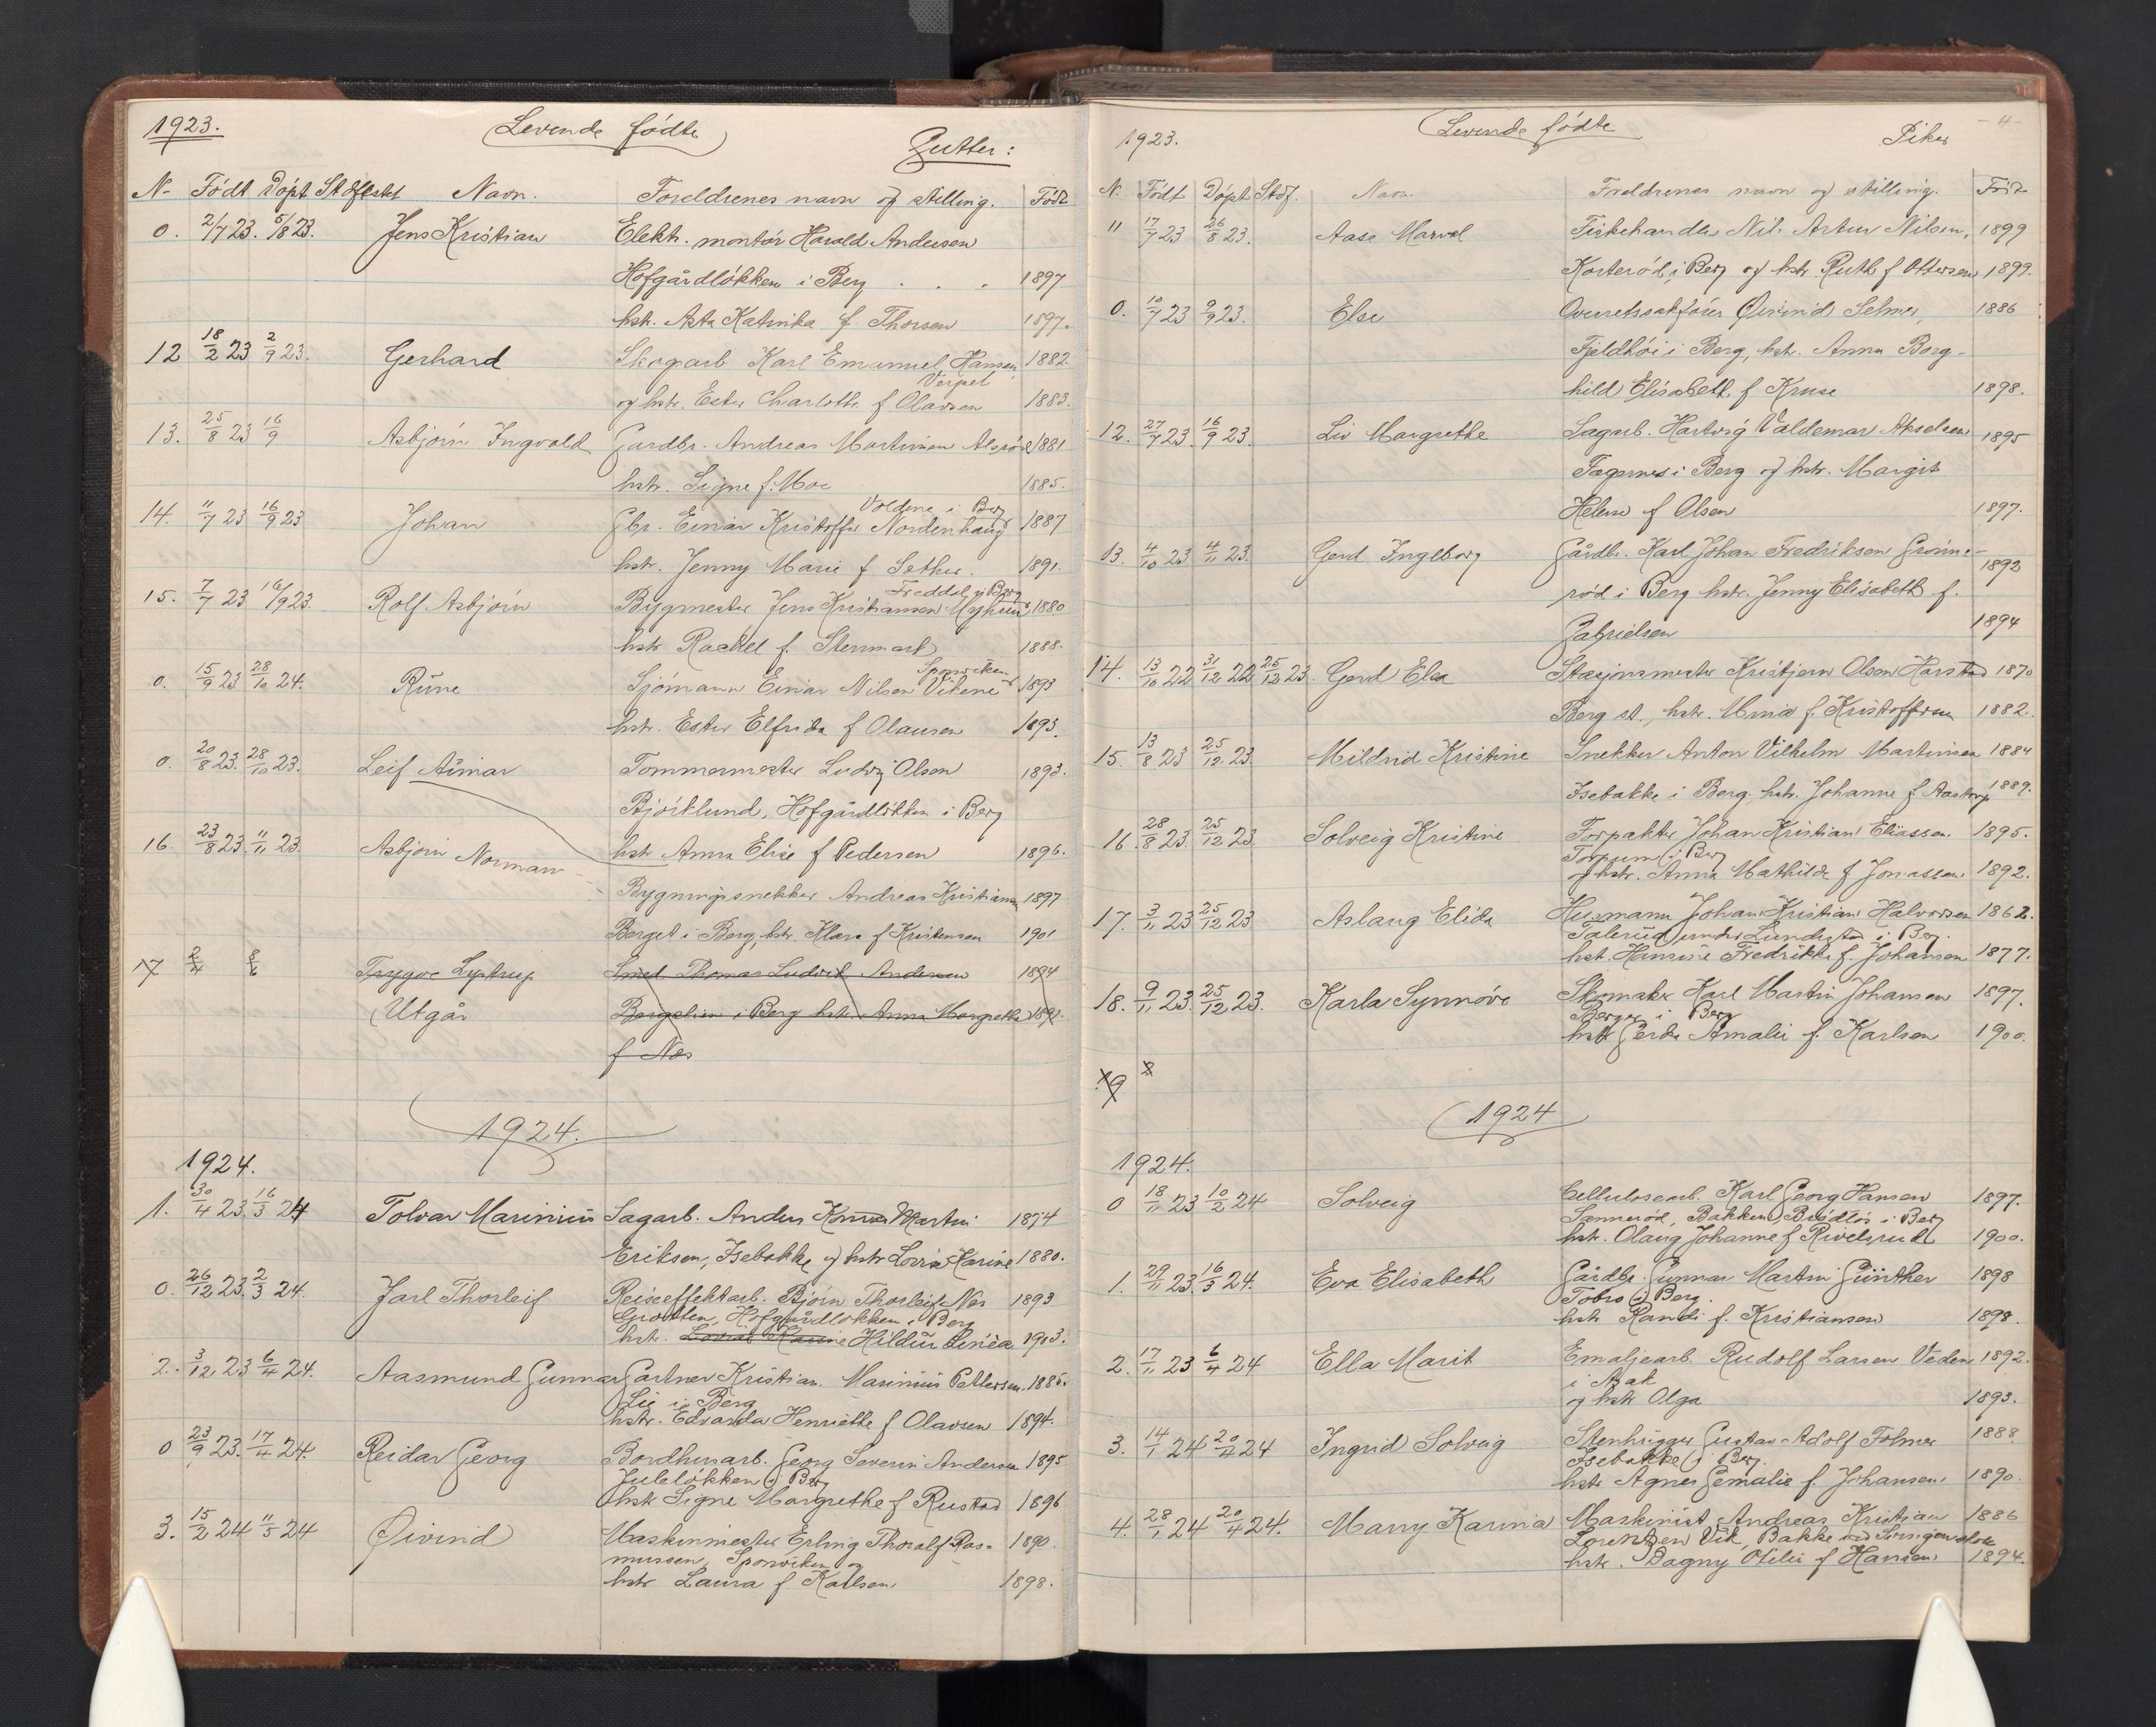 1923.
Levende fødte
Gutter:
N- Født Døpt Stdfestet Navn. Foreldrenes navn og stilling. Født
0. 2/7 23. 5/8 23. Jens Kristian Elektr. montør Harald Andersen
Hofgårdløkken i Berg . . . 1897
hstr. Asta Katinka f. Thorsen 1897.
12 18/2 23 2/9 23. Gerhard Skogarb Karl Emanuel Hansen 1882.
og hstr. Ester Charlotte f Olavsen 1883.
13. 25/8 23 16/9 Asbjørn Ingvald Gardbr. Andreas Martinsen 1881
hstr. Signe f. Moe 1885.
Voldene i Berg
14. 11/7 23 16/9 23 Johan Gbr. Einar Kristoffer Nordenhaug 1887
hstr. Jenny Marie f Sether. 1891.
15. 7/7 23 16/9 23. Rolf Asbjørn Bygmester Jens Kristiansen 1880
hstr Rachel f. Stenmark 1888.
Sponviken
0. 15/9 23 28/10 24. Rune Sjømann Einar Nilsen Vikene 1893
hstr. Ester Elfrida f Olausen 1893.
0. 20/8 23. 28/10 23. Leif Ainar Tømmermester Ludvig Olsen 1893.
Bjørklund, Hofgårdløkken i Berg
16. 23/8 23. 11/11 23. Asbjørn Norman hstr Anna Elise f Pedersen 1896.
Bygningssnekker Andreas Kristiansen 1897
Berget i Berg, hstr. Klara f Kristensen 1901
17 2/4 8/6 Trygve Lystrup Smed Thomas Ludvik Andersen 1894
Utgår i Berg hstr. Anna Margrethe 1891.
f Næs
1924.
1924.
1. 30/4 23. 16/3 24 Tolvar Marinius Sagarb. Anders Martin 1874
Eriksen, Isebakke og hstr Lovise Karine 1880.
0. 26/12 23. 2/3 24. Jarl Thorleif Reiseeffektarb. Bjørn Thorleif Næs 1893
Grotten, Hofgårdløkken i Berg
hstr. Hildur Linéa 1903.
2. 3/12 23 6/4 24. Aasmund Gunnar Gartner Kristian Marinius Pettersen. 1886.
Lie i Berg
hstr. Edvarda Henriette f Olavsen 1894.
0 23/9 23. 17/4 24. Reidar Georg Bordhusarb. Georg Severin Andersen 1895
Juleløkken i Berg
hstr Signe Margrethe f Rustad 1896
3. 15/2 24 11/5 24 Øivind Maskinmester Erling Thoralf Ras- 1890.
mussen, Sponviken og
hstr Laura f Karlsen 1898.
- 4 -
1923.
Levende fødte
Piker
N. Født Døpt Stdf. Navn. Foreldrenes navn og stilling. Født
11 17/7 23 26/8 23. Aase Marvel Fiskehandler Nils Artur Nilsen, 1899
Korterød i Berg og hstr. Ruth f Ottersen 1899.
0. 10/7 23 9/9 23. Else Overretssakfører Øivind Selmer, 1886
Fjeldhøi i Berg, hstr. Anna Borg-
hild Elisabeth f Kruse 1898.
12. 27/7 23. 16/9 23. Liv Margrethe Sagarb. Hartvig Valdemar Akselsen 1895
Fagernes i Berg og hstr. Margit
Helene f Olsen 1897.
13. 4/10 23 4/11 23. Gerd Ingeborg Gårdbr. Karl Johan Fredriksen Grønne- 1892
rød i Berg hstr. Jenny Elisabeth f.
Gabrielsen 1894
14. 13/10 22 31/12 22 25/12 23. Gerd Elsa Stasjonsmester Kristjern Olsen Harstad 1870
Berg st., hstr. Mina f. Kristoffersen 1882.
15. 13/8 23 25/12 23. Mildrid Kristine Snekker Anton Vilhelm Martinsen 1884
Isebakke i Berg. hstr. Johanne f Aastorp 1889.
16. 28/8 23. 25/12 23. Solveig Kristine Johan Kristian Eliassen 1895.
Torpum i Berg
og hstr. Anna Mathilde f Jonassen 1892.
17. 3/11 23 25/12 23 Aslaug Elida Husmann Johan Kristian Halvorsen 1862.
under Lundestad i Berg.
hst. Hansine Fredrikke f. Johansen 1877.
18. 9/11 23. 25/12 23. Karla Synnøve Skomaker Karl Martin Johansen 1897.
i Berg
hstr Gerda Amalie f. Karlsen 1900.
19
1924
1924.
0 18/11 23 10/2 24 Solveig Cellulosearb. Karl Georg Hansen 1897.
Sannerød, Bakken, Brødløs i Berg
hstr. Olaug Johanne f Rivelsrud 1900.
1. 29/11 23. 16/3 24. Eva Elisabeth Gårdbr. Gunnar Martin Günther 1898
i Berg.
hstr Randi f. Kristiansen 1898.
2. 17/11 23 6/4 24 Ella Marit Emaljearb. Rudolf Larsen Veden 1892.
og hstr Olga 1893.
3. 14/1 24 20/4 24 Ingrid Solveig Stenhugger Gustav Adolf Folmer 1888.
Isebakke i Berg.
hstr Agnes f. Johansen. 1890.
4. 28/1 24 20/4 24. Marry Karina Maskinist Andreas Kristian 1886
Lorentzen Vik, Bakke
hstr. Dagny Otilie f Hansen 1894.